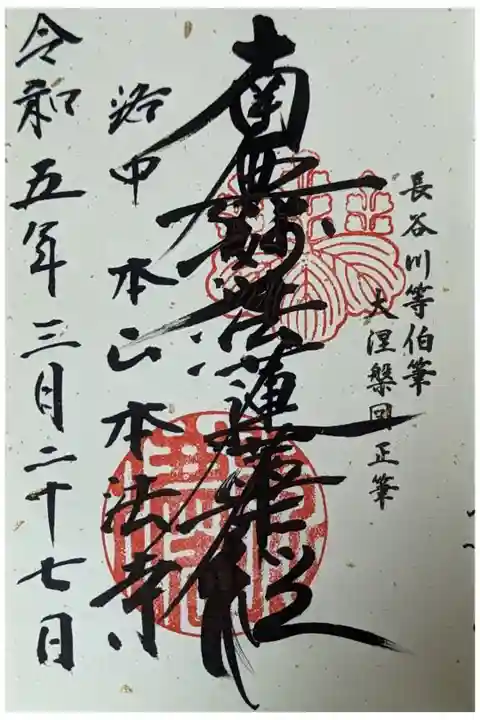 長谷川等伯筆
大涅槃図正筆
南無妙法蓮華経
洛中 本山本法寺
令和五年三月二十七日